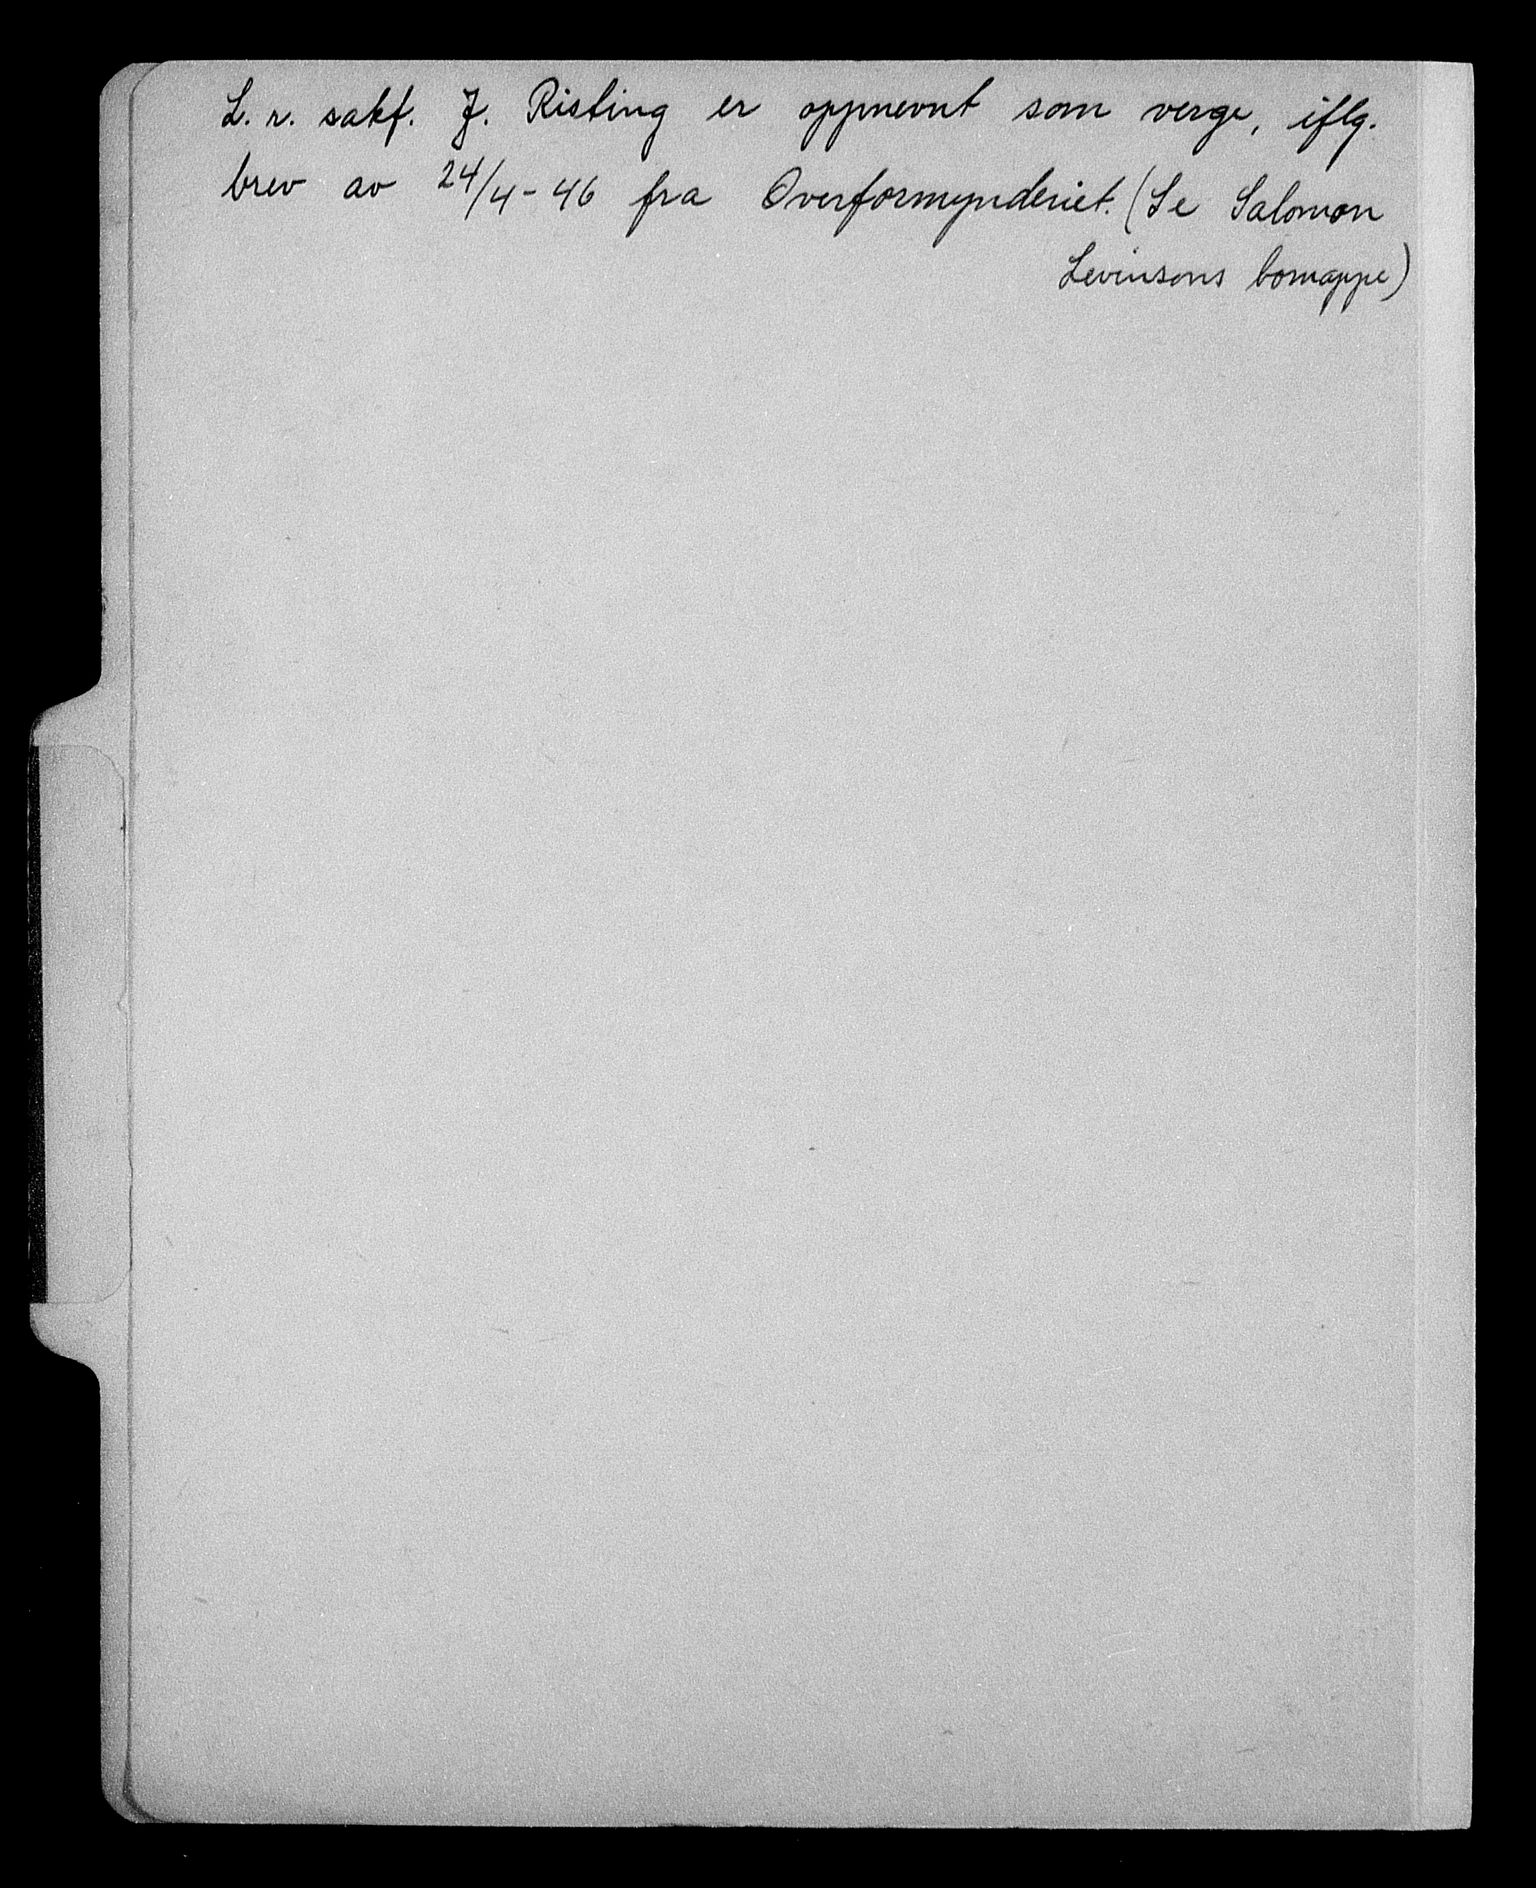 L. r. sakf. J. Risting er oppnevnt som verge, iflg.
brev av 24/4-46 fra Overformynderiet. (Se Salomon
Levinsons bomappe)